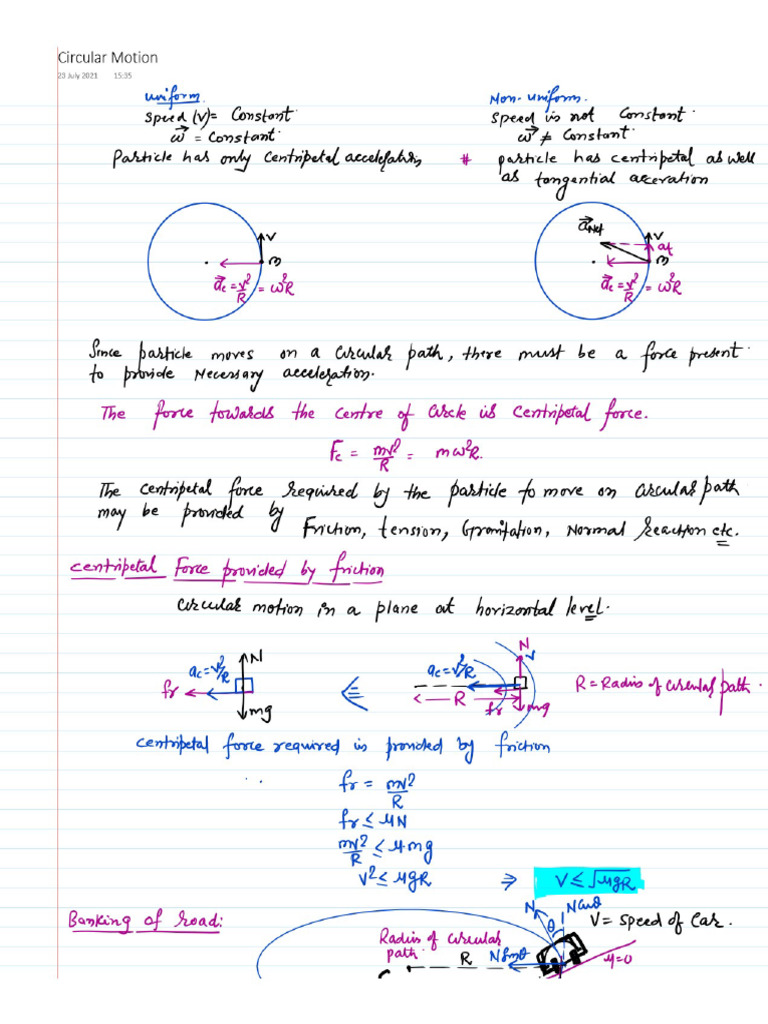 Circular Motion
23 July 2021 15:35
uniform.
Speed (v) = Constant.
ω⃗ = Constant.
Particle has only centripetal acceleration
Non-uniform.
Speed is not Constant.
ω⃗ ≠ Constant.
# particle has centripetal as well
as tangential acceration
v
m
a⃗c = v²/R = ω²R
a⃗Net
v
at
m
a⃗c = v²/R = ω²R
Since particle moves on a circular path, there must be a force present
to provide necessary acceleration.
The force towards the centre of circle is centripetal force.
Fc = mv²/R = mω²R.
The centripetal force required by the particle to move on circular path
may be provided by Friction, tension, Gravitation, Normal Reaction etc.
Centripetal Force provided by friction
Circular motion in a plane at horizontal level.
N
ac = v²/R
fr
mg
N
v
ac = v²/R
R
fr
mg
R = Radius of circular path.
Centripetal force required is provided by friction
fr = mv²/R
fr ≤ μN
mv²/R ≤ μmg
v² ≤ μgR ⇒ V ≤ √μgR
Banking of Road:
N
Ncosθ
θ
V = Speed of Car.
Radius of circular
path.
R
Nsinθ
μ=0